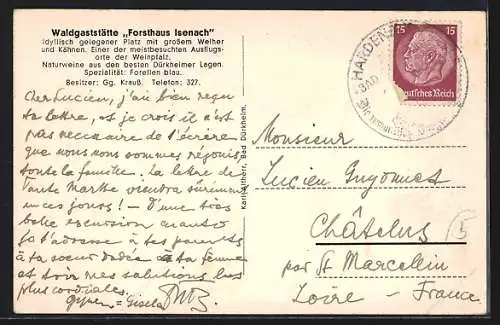 Waldgaststätte „Forsthaus Isenach"
Idyllisch gelegener Platz mit großem Weiher
und Kähnen. Einer der meistbesuchten Ausflugs-
orte der Weinpfalz.
Naturweine aus den besten Dürkheimer Lagen.
Spezialität: Forellen blau.
Besitzer: Gg. Krauß. Telefon: 327.
Cher Lucien, j'ai bien reçu
ta lettre, et je crois il n'est
pas necessaire de l'écrire
que nous nous sommes réjouis,
toute la famille. La lettre de
Tante Marthe viendra sûrement
ces jours! - D'une très
belle excursion
j'adresse à tes parents
à ta soeur à ta femme
et toi mes salutations les
plus cordiales.
= Gisela
Karl Altherr, Bad Dürkheim.
15 15
Deutsches Reich
HARDEN
BAD
Monsieur
Lucien Guyonnet
Châtelus
par St Marcellin
Loire - France
5